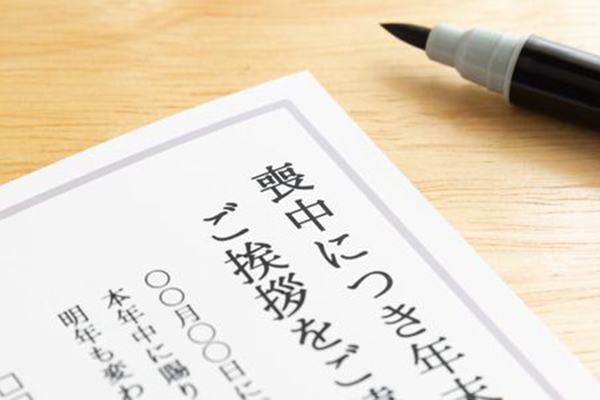 喪中につき年末
ご挨拶をご
〇〇月〇〇日に
本年中に賜り
明年も変わ